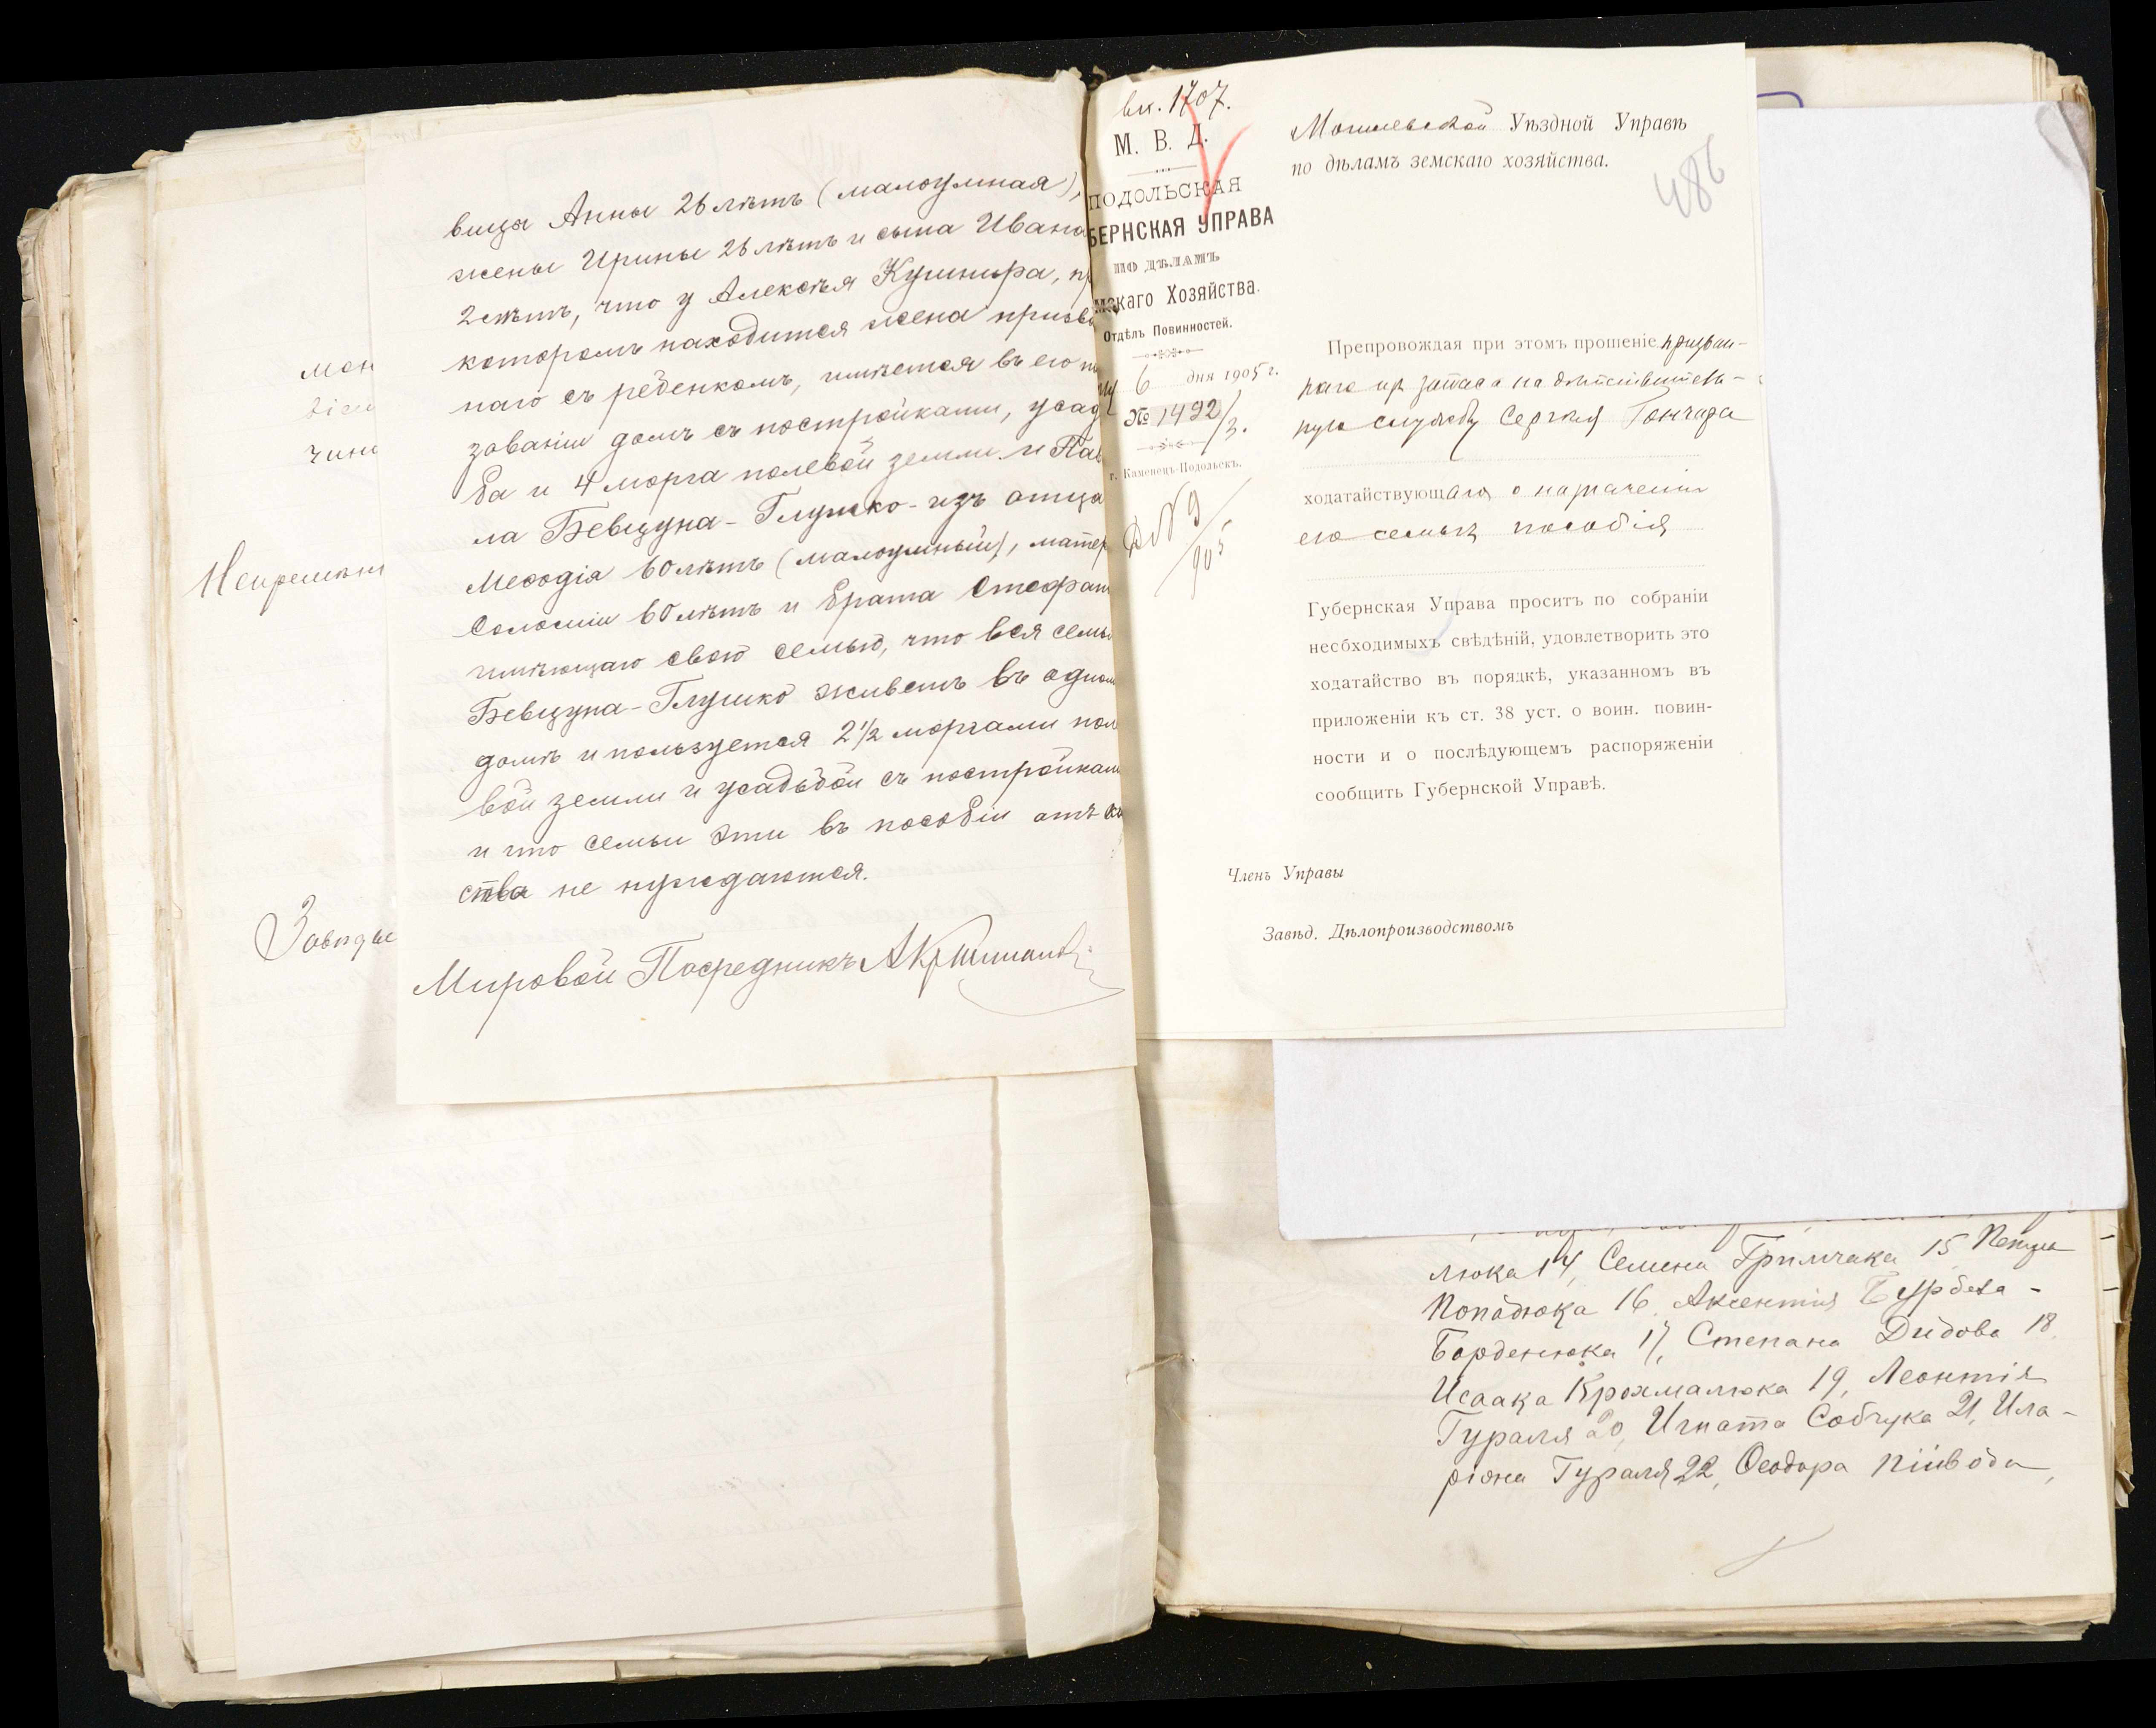 вицы Анны 26 лѣтъ (малоумная),
жены Ирины 26 лѣтъ и сына Ивана
2 лѣтъ, что у Алексѣя Кушнира, пр
которомъ находится жена призв
наго съ ребенкомъ, имѣется въ его по
зованіи домъ съ постройками, усадь
ба и 4 морга полевой земли и Пав
ла Бевцуна-Глушко - изъ отца
Меѳодія 60 лѣтъ (малоумный), матер
Соломіи 60 лѣтъ и брата Стефан
имѣющаго свою семью, что вся семь
Бевцуна-Глушко живетъ въ одном
домѣ и пользуется 2 1/2 моргами пол
вой земли и усадьбой съ постройкам
и что семьи эти въ пособіи отъ ка
ства не нуждаются.
Мировой Посредникъ
мон
чини
Непремѣн
Завѣды
вх. 1707.
М. В. Д.
ПОДОЛЬСКАЯ
БЕРНСКАЯ УПРАВА
ПО ДѢЛАМЪ
мскаго Хозяйства.
Отдѣлъ Повинностей.
6 дня 1905 г.
№ 1492/3.
г. Каменецъ-Подольскъ.
Могилевской Уѣздной Управѣ
по дѣламъ земскаго хозяйства.
486
Препровождая при этомъ прошеніе призван-
наго изъ запаса на дѣйствитель-
ную службу Сергѣя Гончара
ходатайствующаго о назначеніи
его семьѣ пособія
Губернская Управа проситъ по собраніи
несбходимыхъ свѣдѣній, удовлетворить это
ходатайство въ порядкѣ, указанномъ въ
приложеніи къ ст. 38 уст. о воин. повин-
ности и о послѣдующемъ распоряженіи
сообщить Губернской Управѣ.
Членъ Управы
Завѣд. Дѣлопроизводствомъ
люка 14, Семена Гримчака 15,
Попадюка 16, Аксентія
Борденюка 17, Степана Дидова 18,
Исаака Крохмалюка 19, Леонтія
Гураля 20, Игната Собчука 21, Ила-
ріона Гураля 22, Ѳеодора